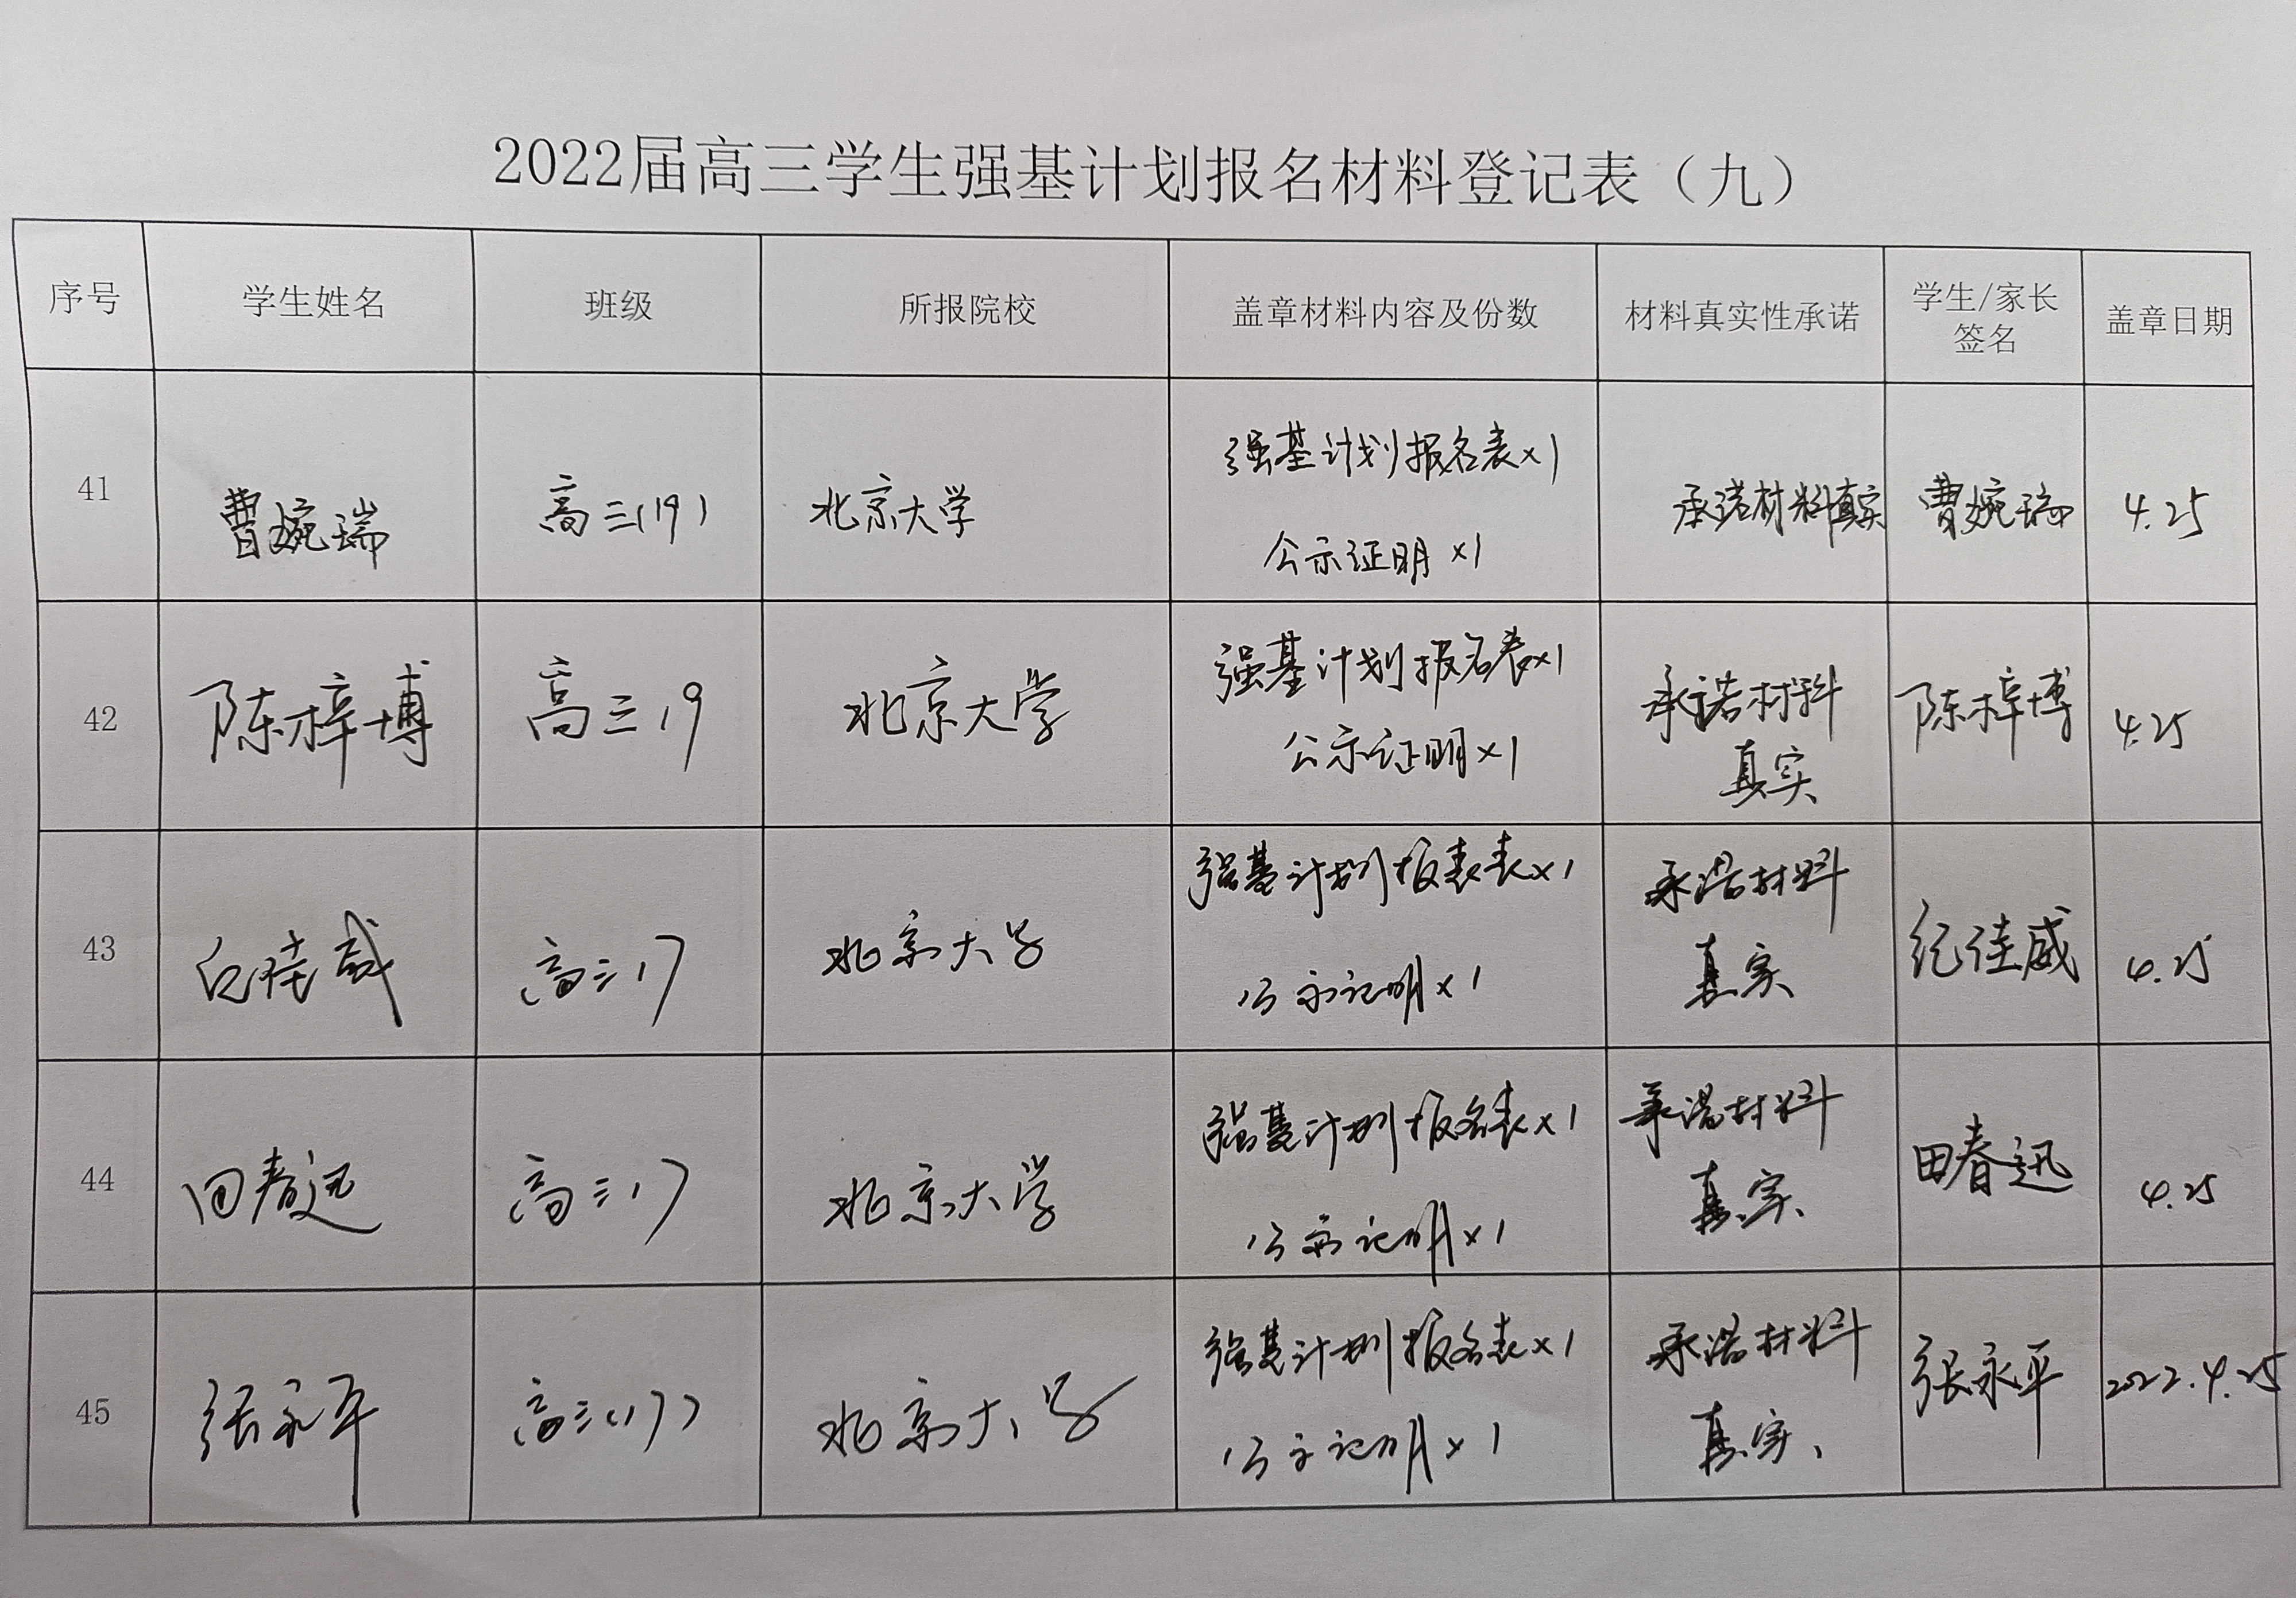 2022届高三学生强基计划报名材料登记表（九）
序号 学生姓名 班级 所报院校 盖章材料内容及份数 材料真实性承诺 学生/家长 盖章日期
签名
41 曹婉瑞 高三(19) 北京大学 强基计划报名表×1 承诺材料真实 曹婉瑞 4.25
公示证明×1
42 陈梓博 高三19 北京大学 强基计划报名表×1 承诺材料 陈梓博 4.25
公示证明×1 真实
43 纪佳威 高三17 北京大学 强基计划报表表×1 承诺材料 纪佳威 4.25
公示证明×1 真实
44 田春迅 高三17 北京大学 强基计划报名表×1 承诺材料 田春迅 4.25
公示证明×1 真实
45 张永平 高三(17) 北京大学 强基计划报名表×1 承诺材料 张永平 2022.4.25
公示证明×1 真实